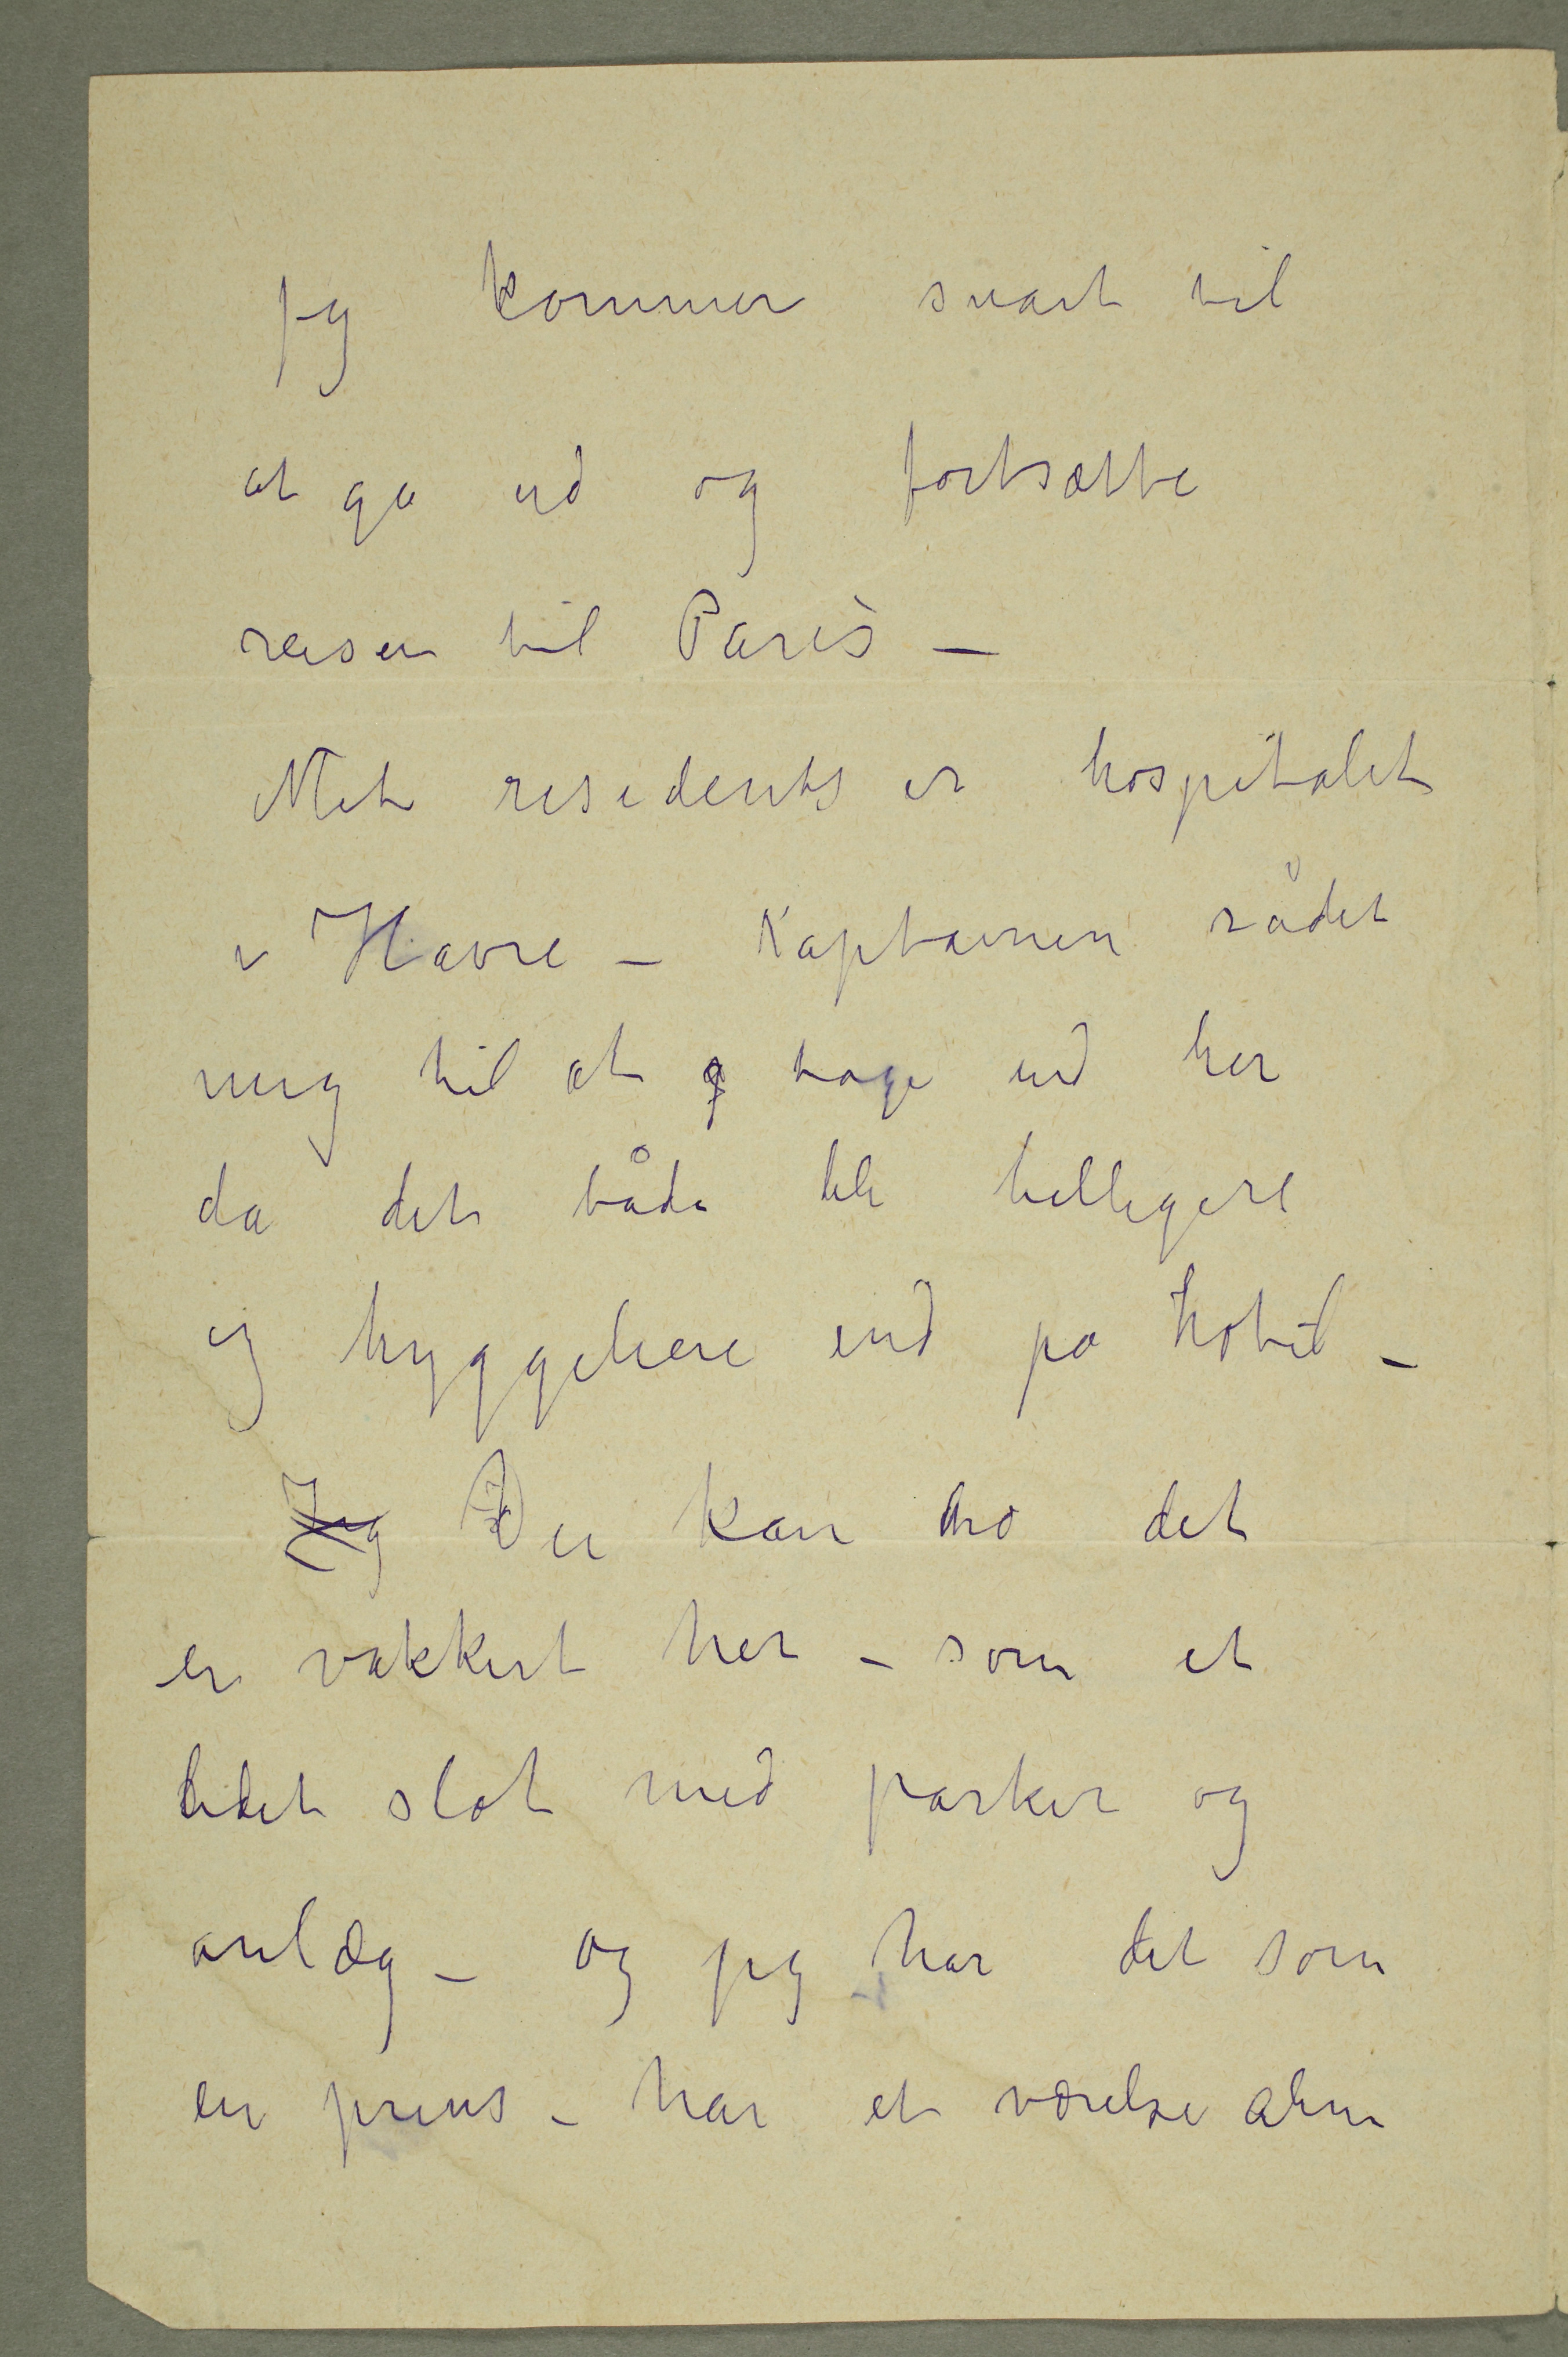 Jeg kommer snart til
at ga ud og fortsætte
reisen til Paris –
Mit residents er hospitalet
i Havre – Kaptainen rådet
mig til at tage ind her
da det både ble billigere
og hyggeligere end pa hotel –
Jeg Du kan tro det
er vakkert her – som et
lidet slot med parker og
anlæg – og jeg har det som
en prins – har et værelse alene